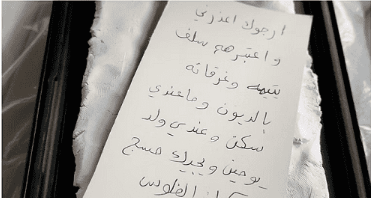 ارجوك اعذرني
و اعتبرهم سلف
يتيمه وغرقانه
بالديون وماعندي
سكن وعندي ولد
يوحين ويجيك
الفلوس